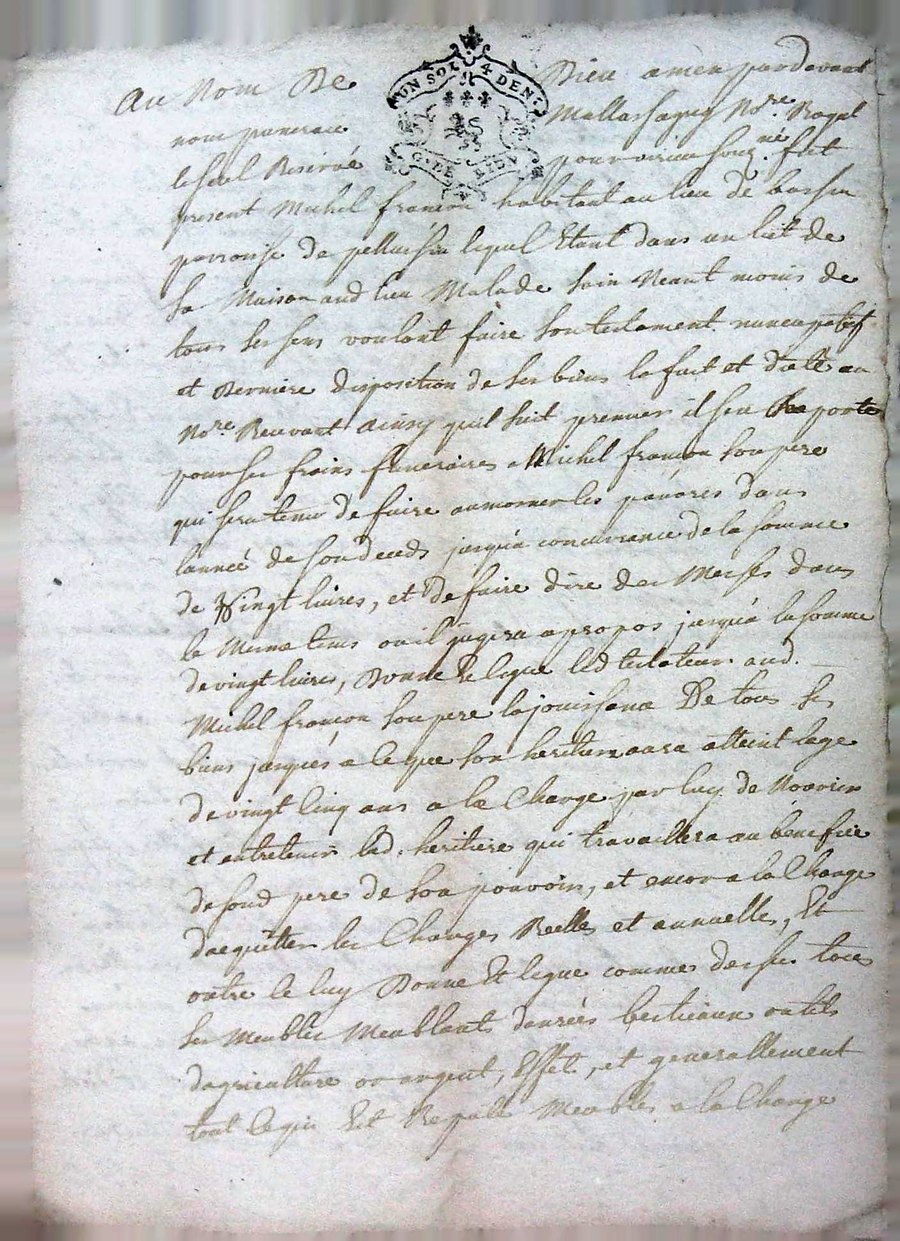 Au Nom De Dieu amen pardevant
UN SOL 4 DEN.
nous Mallassagny No.re Royal
le seel Reservé pour vainc soug.né fut
present Michel françon habitant au lieu de bassin
parroisse de pellussin lequel Etant dans un lict de
sa Maison aud lieu Malade sain Neant moins de
tous ses sens voulant faire son testament nuncupatif
et Derniere disposition de ses biens la fait et dicté au
No.re Recevant ainsy quil suit premier il sen Raporte
pour ses frais funeraires a Michel françon son pere
qui sera tenu de faire aumoner les pauvres dans
lanneé de son deceds jusqua concurrance de la somme
de Vingt livres, et De faire dire des Messes dans
le Meme tems ou il jugera apropos jusqua la somme
de vingt livres, Donne et legue led testateur aud.
Michel françon son pere la jouissance De tous ses
biens jusques a ce que son heritier aura atteint lage
de vingt cinq ans a la Charge par luy de Nourrir
et entretenir lad. heritiere qui travaillera au benefice
de sond pere de son pouvoir, et encor a la Charge
dacquitter les Charges Reelles et annuelles, Et
outre ce luy Donne Et legue comme dessus tous
ses Meubles Meublants danrées bestieaux outils
dagriculture or argent, Effets, et generallement
tout ce qui Est Reputé Meubles a la Charge